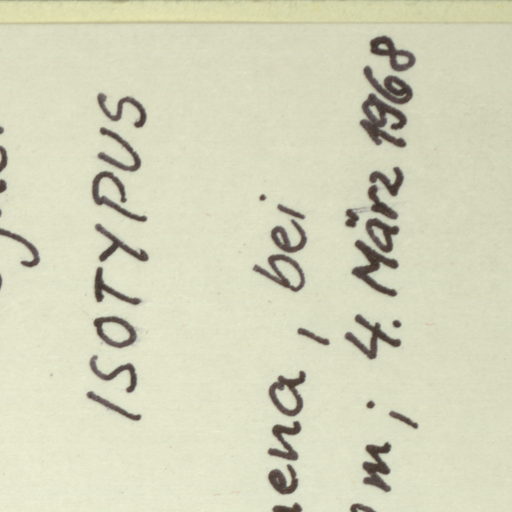 ISOTYPUS
bei
m; 4. März 1968